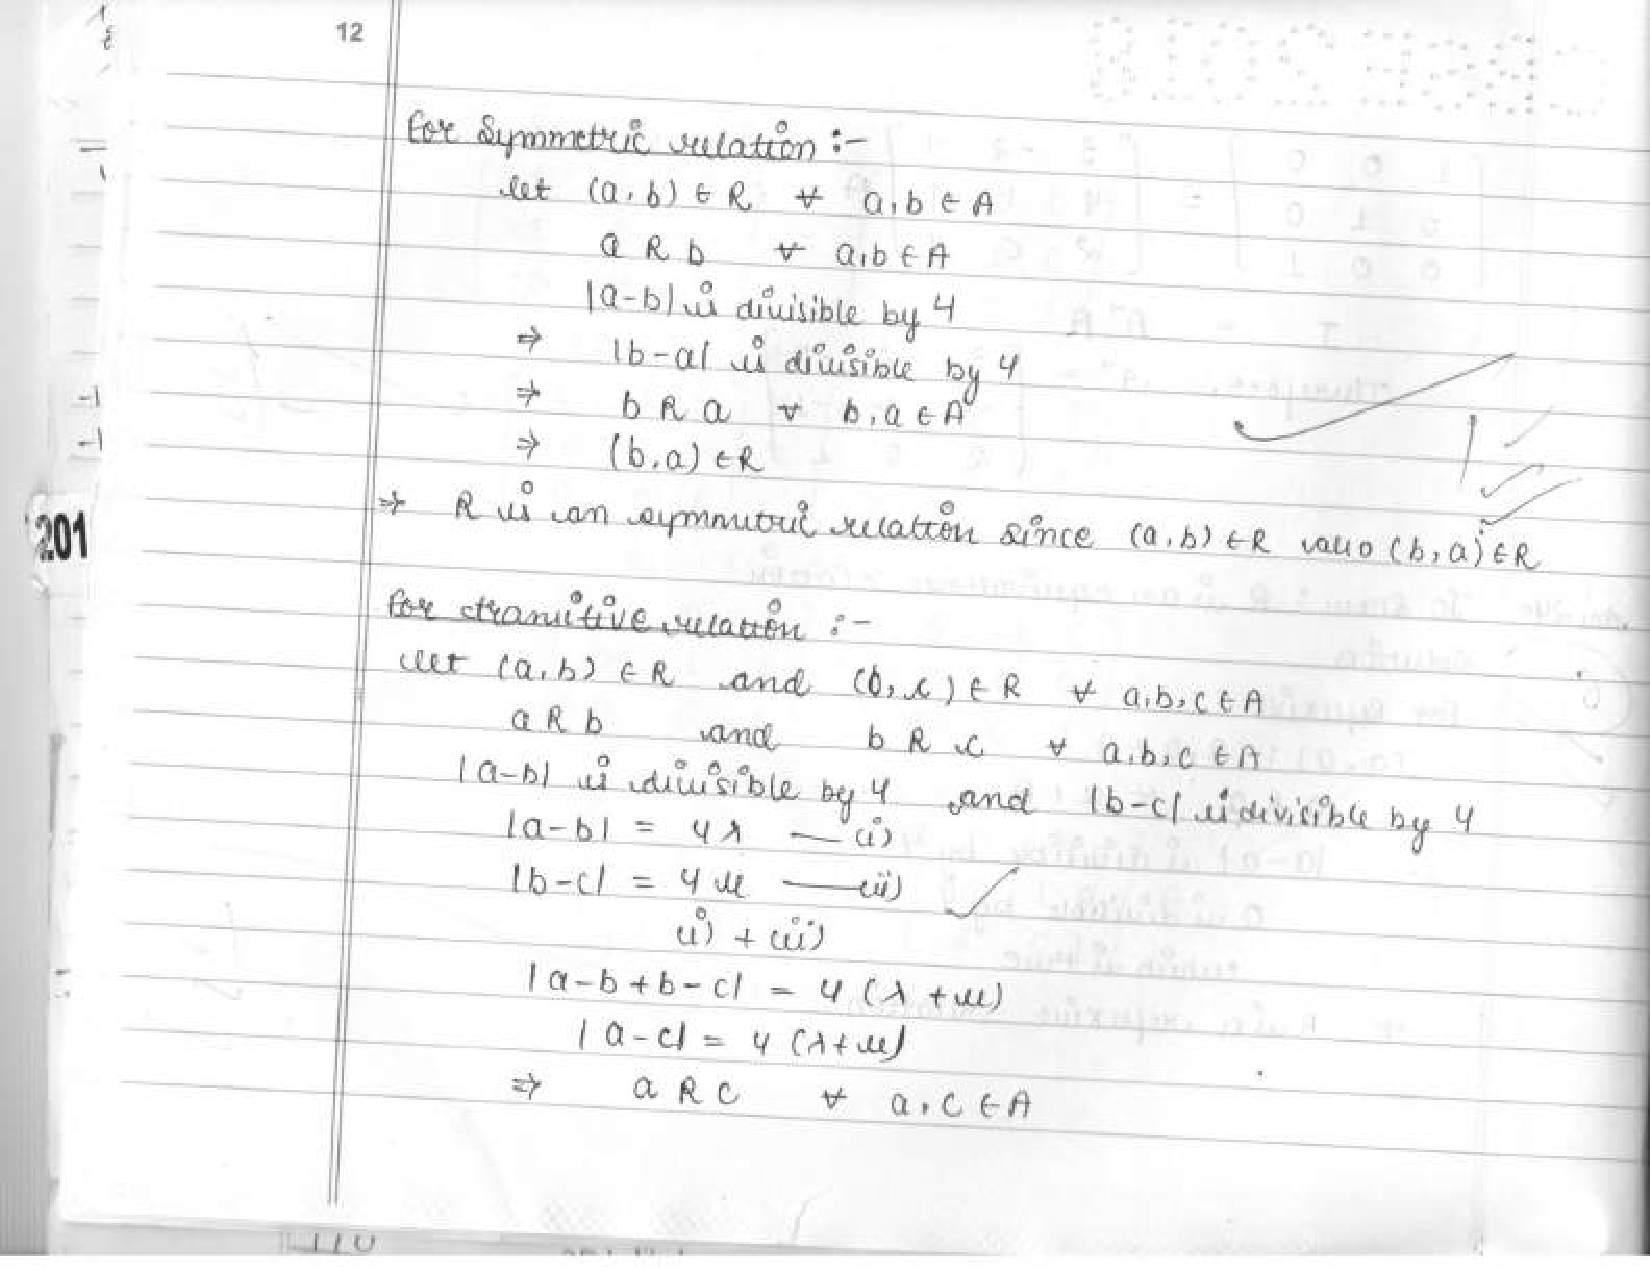 12
for Symmetric relation :-
let (a, b) ∈ R ∀ a, b ∈ A
a R b ∀ a, b ∈ A
|a-b| is divisible by 4
⇒ |b-a| is divisible by 4
⇒ b R a ∀ b, a ∈ A
⇒ (b, a) ∈ R
⇒ R is an symmetric relation since (a, b) ∈ R also (b, a) ∈ R
201
for transitive relation :-
let (a, b) ∈ R and (b, c) ∈ R ∀ a, b, c ∈ A
a R b and b R c ∀ a, b, c ∈ A
|a-b| is divisible by 4 and |b-c| is divisible by 4
|a-b| = 4λ — (i)
|b-c| = 4μ — (ii)
(i) + (ii)
|a-b+b-c| = 4 (λ+μ)
|a-c| = 4 (λ+μ)
⇒ a R c ∀ a, c ∈ A